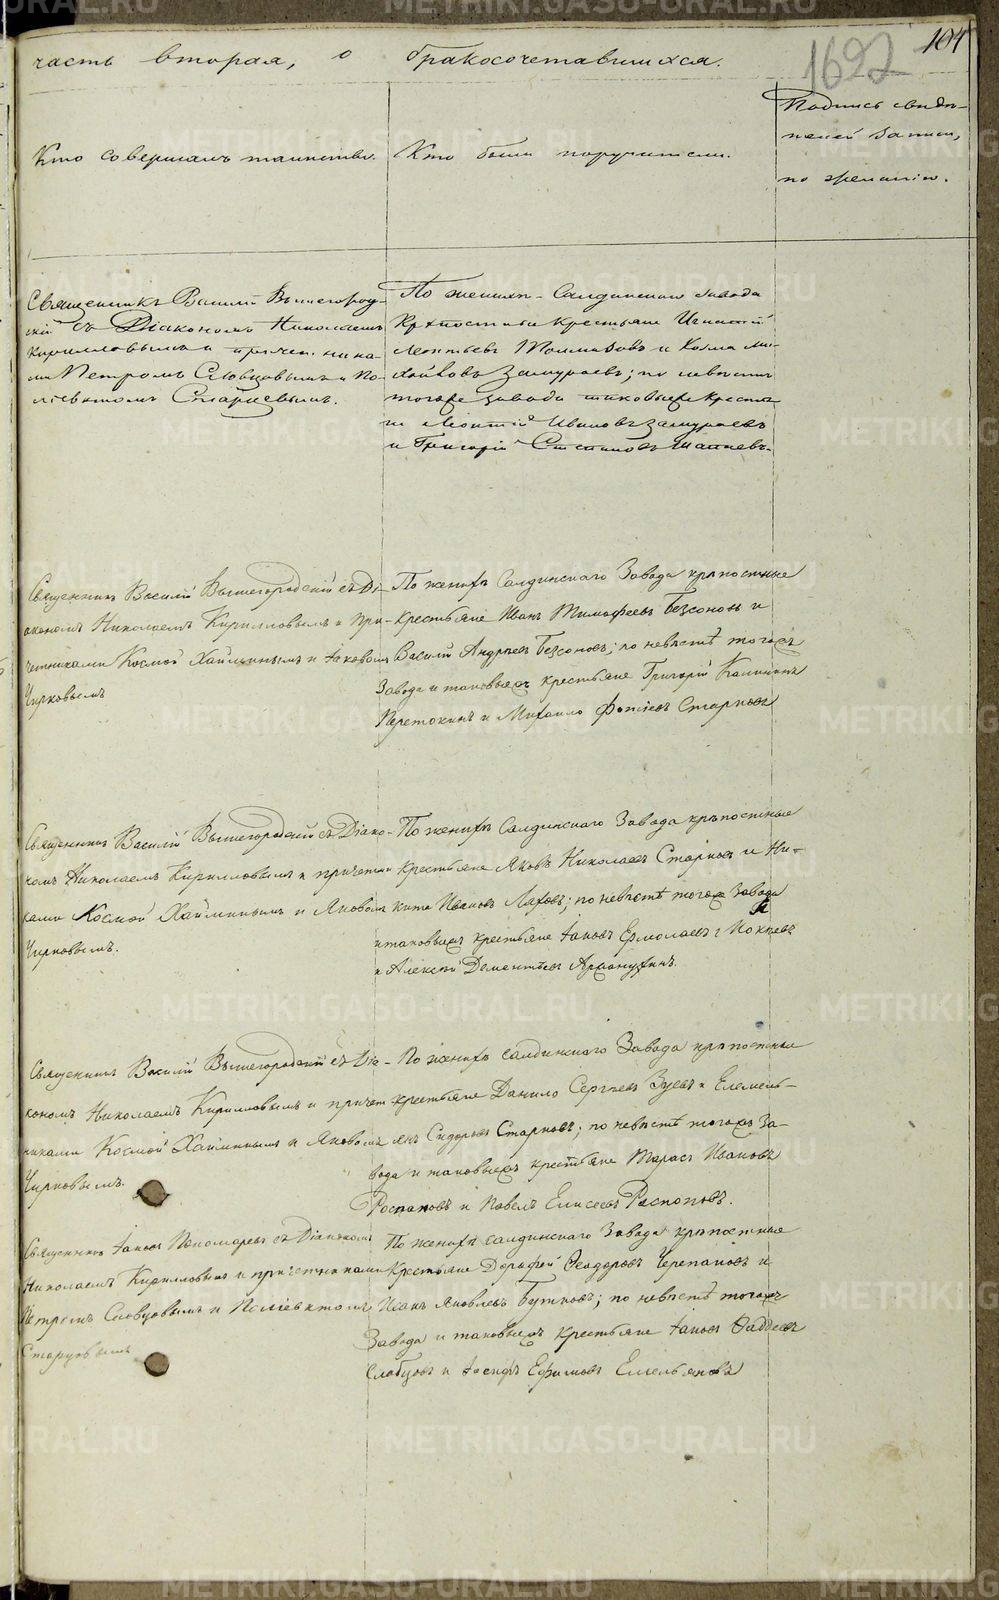 104
1692
часть вторая, о бракосочетавшихся.
Кто совершалъ таинство.
Кто были поручители.
Подпись свидѣ-
телей записи,
по желанію.
Священникъ Василій Вышегород-
скій съ Діакономъ Николаемъ
Кирилловымъ и причетника-
ми Петромъ Словцовымъ и По-
ліевктомъ Старцевымъ.
По женихѣ Салдинскаго завода
Крѣпостные крестьяне Игнатій
Леонтьевъ и Козма Ми-
хайловъ Замураевъ; по невѣстѣ
тогоже завода таковыеже крестья-
не Леонтій Ивановъ Замураевъ
и Григорій Степановъ
Священникъ Василій Вышегородскій съ Ді-
акономъ Николаемъ Кирилловымъ и при-
четниками Космой Хайминымъ и Іаковомъ
Чирковымъ
По женихѣ Салдинскаго Завода крѣпостные
Крестьяне Иванъ Тимофеевъ Безсоновъ и
Василій Андреевъ Безсоновъ; по невѣстѣ тогожъ
Завода и таковыежъ крестьяне Григорій
и Михаило Фотіевъ Старковъ
Священникъ Василій Вышегородскій съ Діако-
номъ Николаемъ Кирилловымъ и причетни-
ками Космой Хайминымъ и Яковомъ
Чирковымъ.
По женихѣ Салдинскаго Завода крѣпостные
крестьяне Яковъ Николаевъ Старковъ и Ни-
кита Ивановъ; по невѣстѣ тогожъ Завода
и таковыежъ крестьяне Іаковъ Ермолаевъ
и Алексѣй Дементьевъ
Священникъ Василій Вышегородскій съ Діа-
кономъ Николаемъ Кирилловымъ и причет-
никами Космой Хайминымъ и Яковомъ
Чирковымъ.
По женихѣ Салдинскаго Завода крѣпостные
крестьяне Данило Сергѣевъ Зуевъ и Емель-
янъ Сидоровъ Старковъ; по невѣстѣ тогожъ За-
вода и таковыежъ крестьяне Тарасъ Ивановъ
Роспоповъ и Павелъ Елисеевъ Распоповъ.
Священникъ Іаковъ Пономаревъ съ Діакономъ
Николаемъ Кирилловымъ и причетниками
Петромъ Словцовымъ и Поліевктомъ
Старцовымъ
По женихѣ Салдинскаго Завода крѣпостные
Крестьяне Дорофей Феодоровъ Черепановъ и
Иванъ Яковлевъ Бутковъ; по невѣстѣ тогожъ
Завода и таковыежъ крестьяне Іаковъ Фаддеевъ
и Іосифъ Ефимовъ Емельяновъ
METRIKI.GASO-URAL.RU